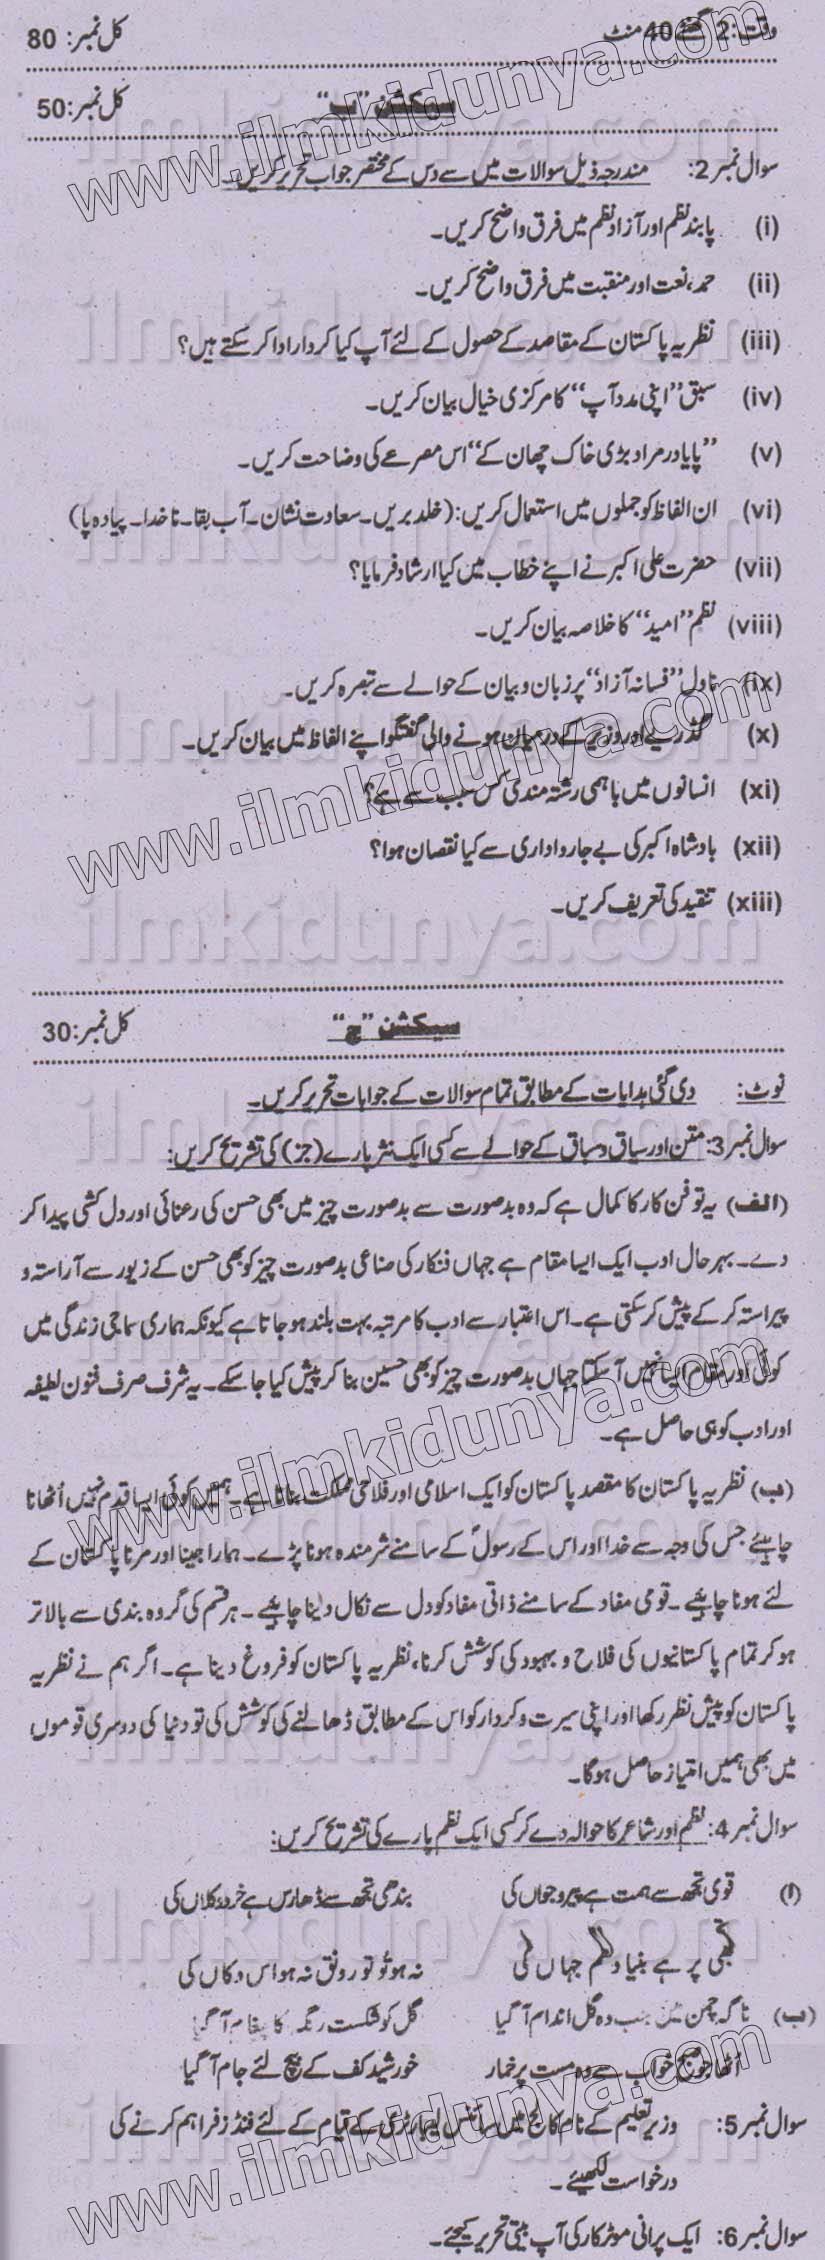 وقت: 2 گھنٹے 40 منٹ کل نمبر: 80
سیکشن "ب" کل نمبر: 50
سوال نمبر 2: مندرجہ ذیل سوالات میں سے دس کے مختصر جواب تحریر کریں۔
(i) پابند نظم اور آزاد نظم میں فرق واضح کریں۔
(ii) حمد، نعت اور منقبت میں فرق واضح کریں۔
(iii) نظریہ پاکستان کے مقاصد کے حصول کے لئے آپ کیا کردار ادا کر سکتے ہیں؟
(iv) سبق "اپنی مدد آپ" کا مرکزی خیال بیان کریں۔
(v) "پایا در مراد بڑی خاک چھان کے" اس مصرعے کی وضاحت کریں۔
(vi) ان الفاظ کو جملوں میں استعمال کریں: (خلد بریں۔ سعادت نشان۔ آب بقا۔ ناخدا۔ پیادہ پا)
(vii) حضرت علی اکبر نے اپنے خطاب میں کیا ارشاد فرمایا؟
(viii) نظم "امید" کا خلاصہ بیان کریں۔
(ix) ناول "فسانہ آزاد" پر زبان و بیان کے حوالے سے تبصرہ کریں۔
(x) گڈریے اور وزیر کے درمیان ہونے والی گفتگو اپنے الفاظ میں بیان کریں۔
(xi) انسانوں میں باہمی رشتہ مندی کس سبب سے ہے؟
(xii) بادشاہ اکبر کی بے جا رواداری سے کیا نقصان ہوا؟
(xiii) تنقید کی تعریف کریں۔
سیکشن "ج" کل نمبر: 30
نوٹ: دی گئی ہدایات کے مطابق تمام سوالات کے جوابات تحریر کریں۔
سوال نمبر 3: متن اور سیاق و سباق کے حوالے سے کسی ایک نثر پارے (جز) کی تشریح کریں:
(الف) یہ تو فن کار کا کمال ہے کہ وہ بدصورت سے بدصورت چیز میں بھی حسن کی رعنائی اور دل کشی پیدا کر
دے۔ بہرحال ادب ایک ایسا مقام ہے جہاں فنکار کی صناعی بدصورت چیز کو بھی حسن کے زیور سے آراستہ و
پیراستہ کر کے پیش کر سکتی ہے۔ اس اعتبار سے ادب کا مرتبہ بہت بلند ہو جاتا ہے کیونکہ ہماری سماجی زندگی میں
کوئی اور مقام ایسا نہیں آ سکتا جہاں بدصورت چیز کو بھی حسین بنا کر پیش کیا جا سکے۔ یہ شرف صرف فنون لطیفہ
اور ادب کو ہی حاصل ہے۔
(ب) نظریہ پاکستان کا مقصد پاکستان کو ایک اسلامی اور فلاحی مملکت بنانا ہے۔ ہمیں کوئی ایسا قدم نہیں اُٹھانا
چاہیئے جس کی وجہ سے خدا اور اس کے رسولؐ کے سامنے شرمندہ ہونا پڑے۔ ہمارا جینا اور مرنا پاکستان کے
لئے ہونا چاہیے۔ قومی مفاد کے سامنے ذاتی مفاد کو دل سے نکال دینا چاہیے۔ ہر قسم کی گروہ بندی سے بالاتر
ہو کر تمام پاکستانیوں کی فلاح و بہبود کی کوشش کرنا، نظریہ پاکستان کو فروغ دینا ہے۔ اگر ہم نے نظریہ
پاکستان کو پیش نظر رکھا اور اپنی سیرت و کردار کو اس کے مطابق ڈھالنے کی کوشش کی تو دنیا کی دوسری قوموں
میں بھی ہمیں امتیاز حاصل ہوگا۔
سوال نمبر 4: نظم اور شاعر کا حوالہ دے کر کسی ایک نظم پارے کی تشریح کریں:
(ا) قوی تجھ سے ہمت ہے پیر و جواں کی بندھی تجھ سے ڈھارس ہے خرد و کلاں کی
تجھی پر ہے بنیاد نظم جہاں کی نہ ہو تُو تو رونق نہ ہو اس دکاں کی
(ب) ناگہ چمن میں جب وہ گل اندام آ گیا گل کو شکست رنگ کا پیغام آ گیا
اُٹھا جو صبح خواب سے وہ مست پر خمار خورشید کف کے بیچ لئے جام آ گیا
سوال نمبر 5: وزیر تعلیم کے نام کالج میں سائنس لیبارٹری کے قیام کے لئے فنڈز فراہم کرنے کی
درخواست لکھیئے۔
سوال نمبر 6: ایک پرانی موٹر کار کی آپ بیتی تحریر کیجئے۔
www.ilmkidunya.com
ilmkidunya.com